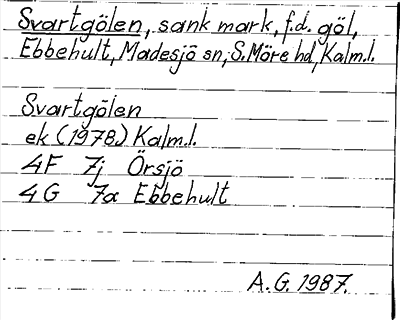 Svartgölen, sank mark, f.d. göl,
Ebbehult, Madesjö sn, S. Möre hd, Kalm.l.
Svartgölen
ek (1978) Kalm.l.
4F 7j Örsjö
4G 7a Ebbehult
A.G. 1987.